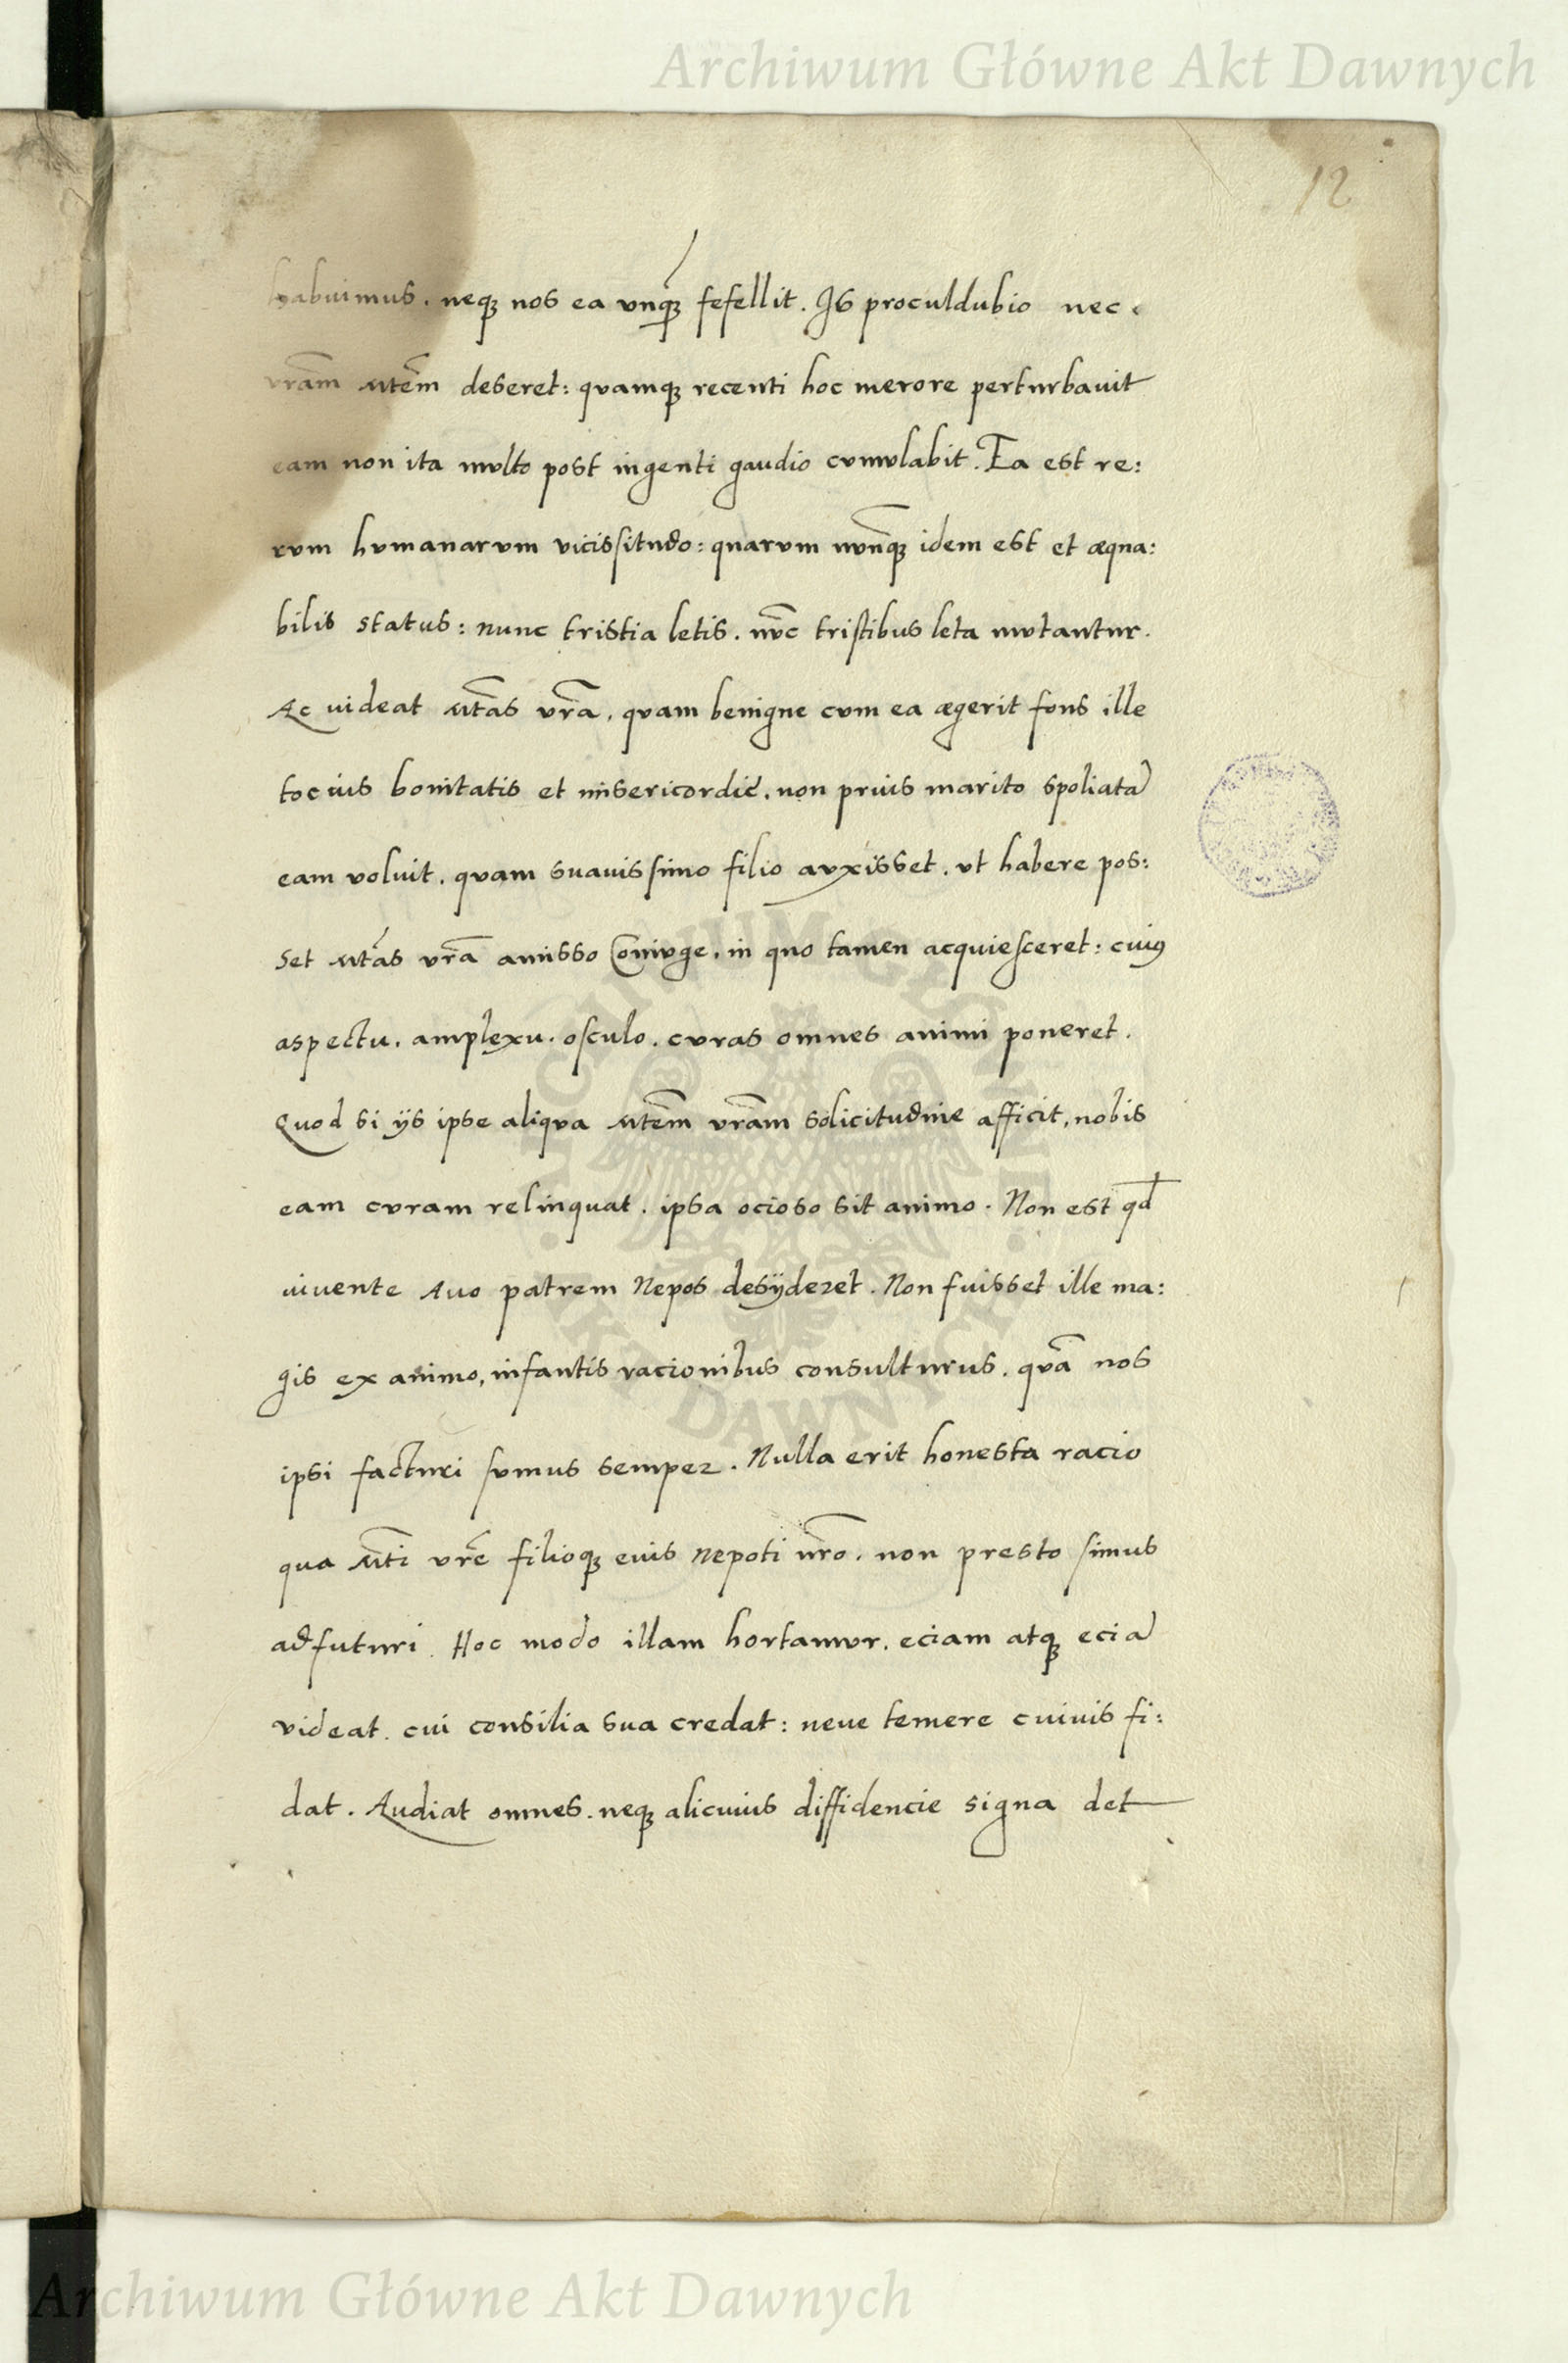 Archiwum Główne Akt Dawnych
12
habuimus. neq₃ nos ea vnq̃₃ fefellit. Is proculdubio nec.
vrãm Mtẽm deseret: quamq₃ recenti hoc merore perturbauit
eam non ita multo post ingenti gaudio cumulabit. Ea est re:
rum humanarum vicissitudo: quarum nunq̃₃ idem est et æqua:
bilis status: nunc tristia letis. nũc tristibus leta mutantur.
Ac uideat Mtãs vrã. quam benigne cum ea ægerit fons ille
tocius bonitatis et misericordię. non prius marito spoliatã
eam voluit. quam suauissimo filio auxisset. vt habere pos:
set Mtãs vrã amisso Coniuge. in quo tamen acquiesceret: cuiꝰ
aspectu. amplexu. osculo. curas omnes animi poneret.
Quod si ijs ipse aliqua Mtẽm vrãm solicitudine afficit, nobis
eam curam relinquat. ipsa ocioso sit animo. Non est qđ
viuente Auo patrem Nepos desyderet. Non fuisset ille ma:
gis ex animo, infantis racionibus consulturus. quã nos
ipsi facturi sumus semper. Nulla erit honesta racio
qua Mti vrẽ filioq₃ eius Nepoti nrõ. non presto simus
adfuturi. Hoc modo illam hortamur. eciam atq₃ eciã
videat. cui consilia sua credat: neue temere cuiuis fi:
dat. Audiat omnes. neq₃ alicuius diffidencie signa det
Archiwum Główne Akt Dawnych